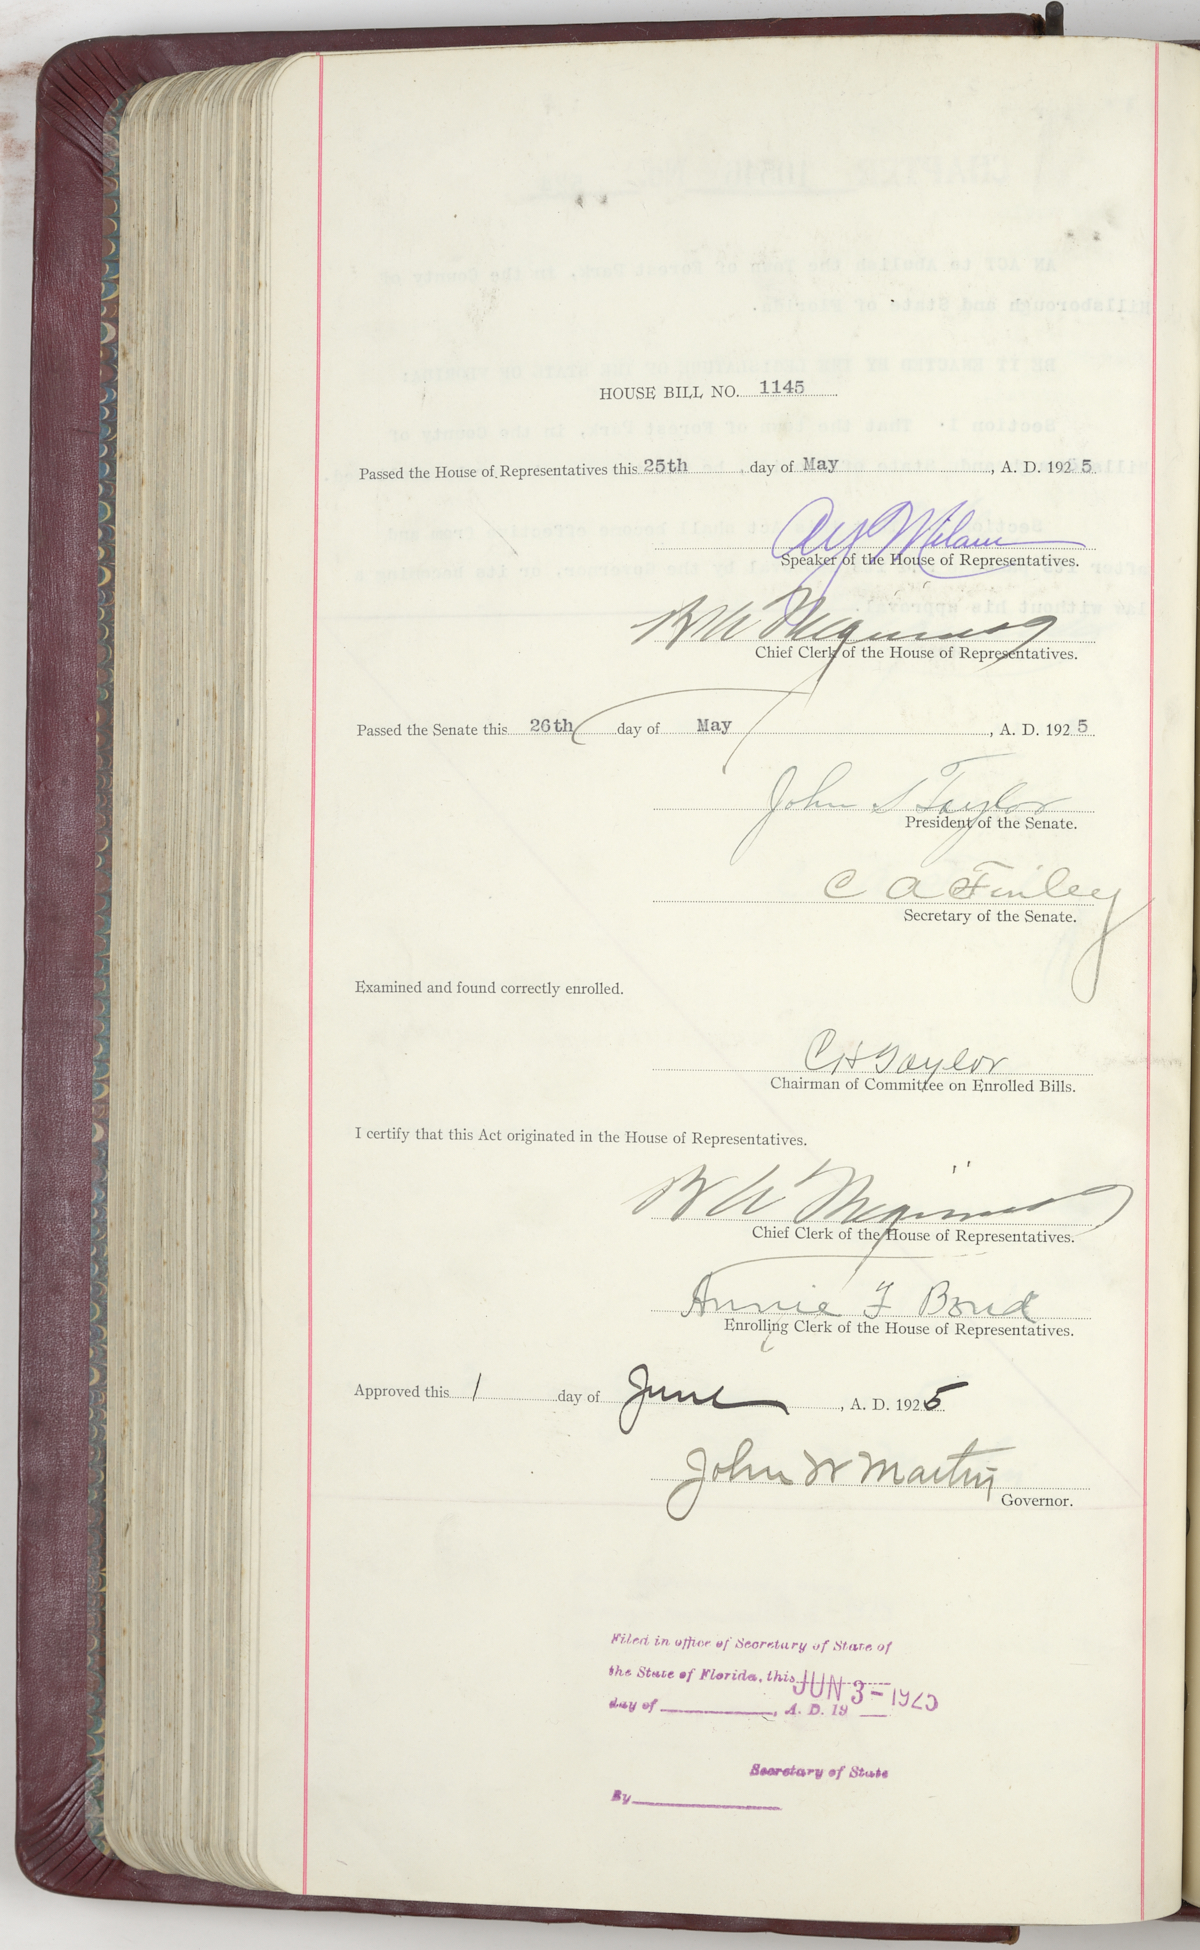 HOUSE BILL NO. 1145
Passed the House of Representatives this 25th day of May, A. D. 1925
A Y Milam
Speaker of the House of Representatives.
Chief Clerk of the House of Representatives.
Passed the Senate this 26th day of May, A. D. 1925
John S Taylor
President of the Senate.
C A Finley
Secretary of the Senate.
Examined and found correctly enrolled.
C H Taylor
Chairman of Committee on Enrolled Bills.
I certify that this Act originated in the House of Representatives.
Chief Clerk of the House of Representatives.
Annie F Bond
Enrolling Clerk of the House of Representatives.
Approved this 1 day of June, A. D. 1925
John W Martin
Governor.
Filed in office of Secretary of State of
the State of Florida, this JUN 3 - 1925
day of , A. D. 19
Secretary of State
By